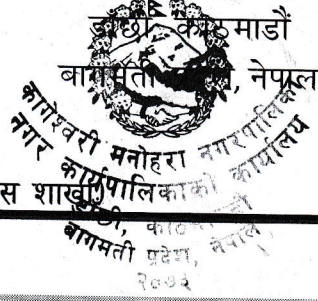 डाँछी काठमाडौं
बागमती प्रदेश, नेपाल
कागेश्वरी मनोहरा नगरपालिका
नगर कार्यपालिकाको कार्यालय
स शाखा
डाँछी, काठमाडौं
बागमती प्रदेश, नेपाल
२०७३